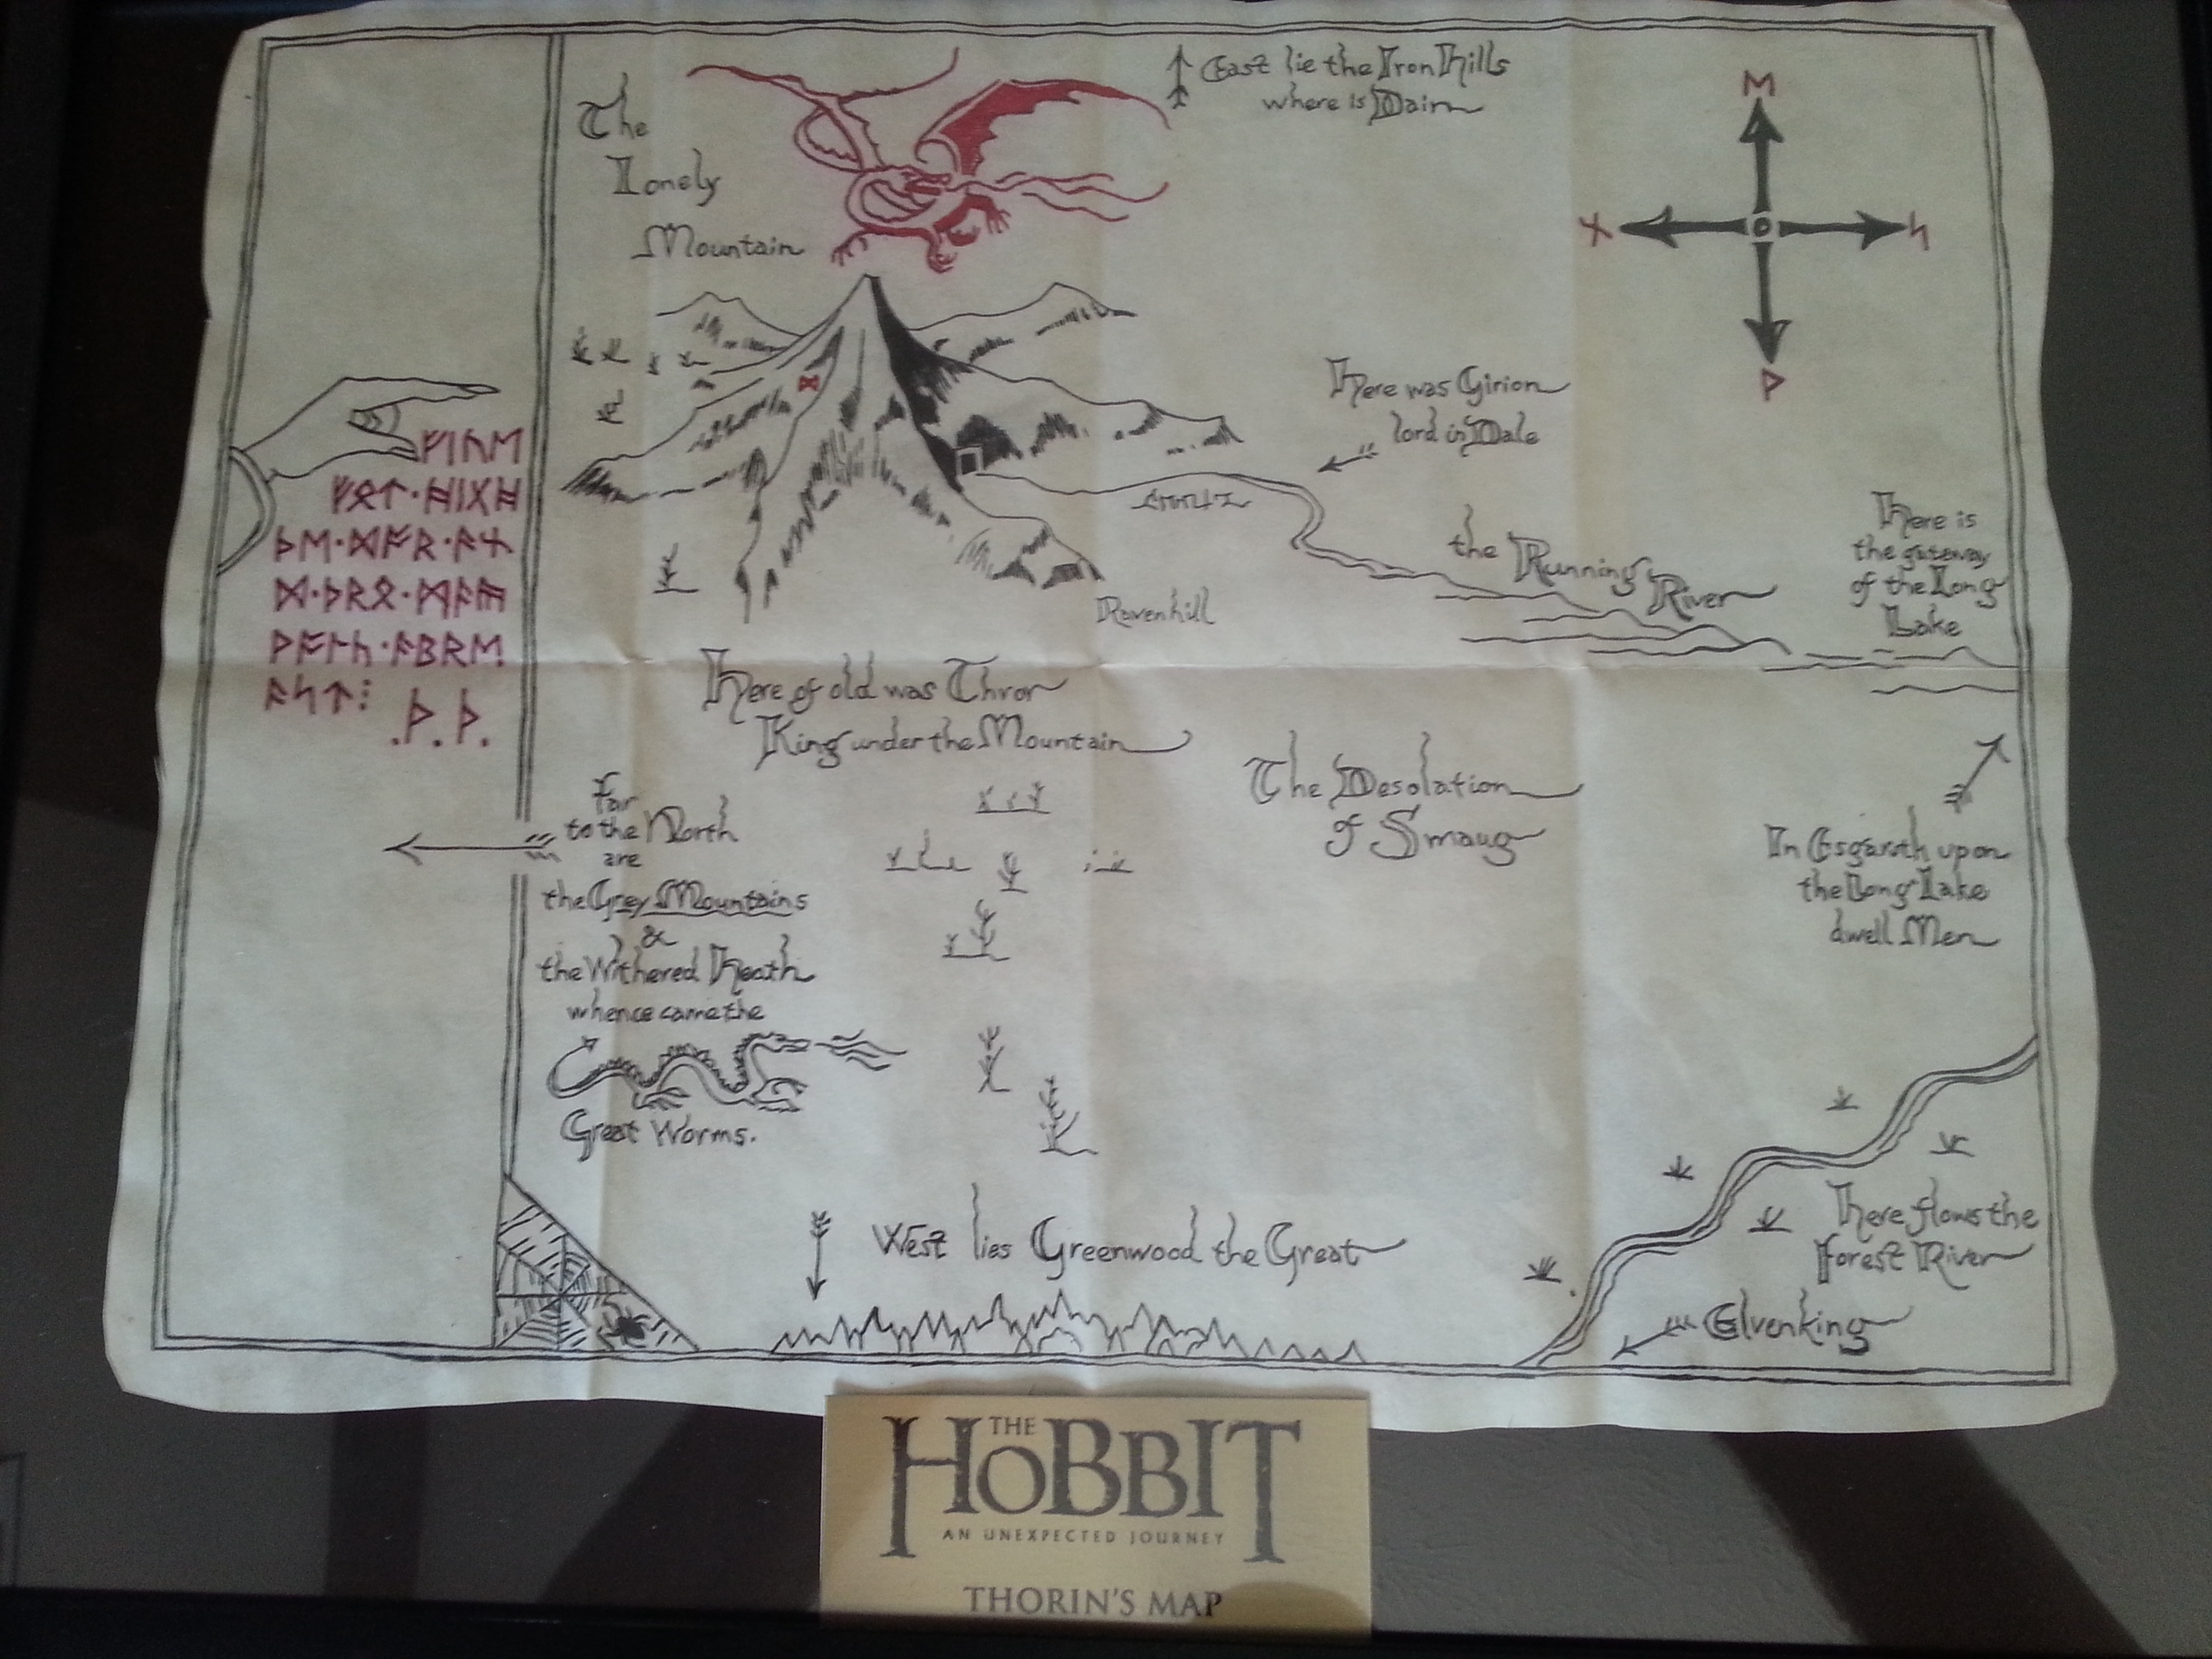 The
Lonely
Mountain
East lie the Iron Hills
where is Dain
ᛖ
ᚾ
ᛋ
ᚹ
ᛞ
ᚠᛁᚢᛖ
ᚠᛟᛏ·ᚻᛁᚷᚻ
ᚦᛖ·ᛞᚩᚱ·ᚪᚾ
ᛞ·ᚦᚱᛟ·ᛗᚪᚣ
ᚹᚩᛚᚳ·ᚪᛒᚱᛖ
ᚪᛋᛏ⁝
.ᚦ.ᚦ.
Here was Girion
lord in Dale
the Running
River
Here is
the gateway
of the Long
Lake
Ravenhill
Here of old was Thror
King under the Mountain
The Desolation
of Smaug
Far
to the North
are
the Grey Mountains
&
the Withered Heath
whence came the
Great Worms.
In Esgaroth upon
the Long Lake
dwell Men
West lies Greenwood the Great
There flows the
Forest River
Elvenking
THE
HOBBIT
AN UNEXPECTED JOURNEY
THORIN'S MAP